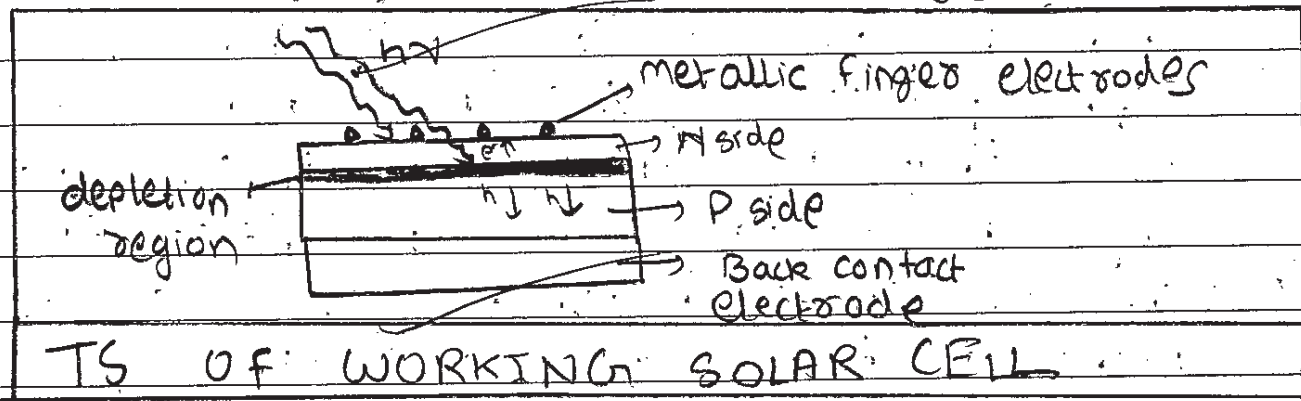 hν
metallic finger electrodes
N side
e↑
depletion
region
h↓ h↓
P side
Back contact
electrode
TS OF WORKING SOLAR CELL.